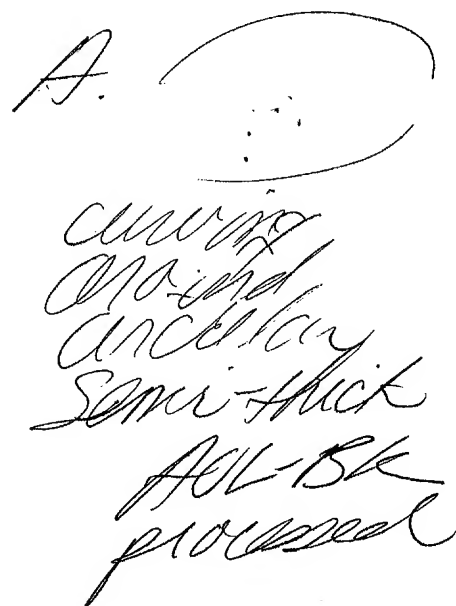 A.
curving
around
circular
Semi-thick
AOL-Bk
processed